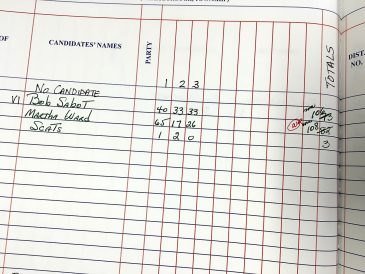 OF
CANDIDATES' NAMES
PARTY
TOTALS
DIST.
NO.
1 2 3
No Candidate
VI Bob Sabot 40 33 33 106
Martha Ward 65 17 26 108
Scats 1 2 0 3